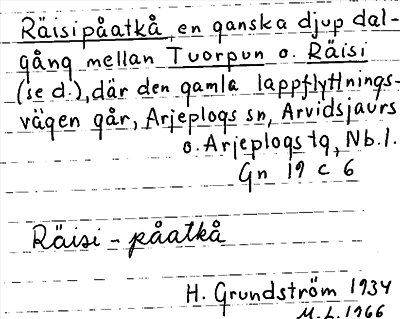 Räisipåatkå, en ganska djup dal-
gång mellan Tuorpun o. Räisi
(se d.), där den gamla lappflyttnings-
vägen går, Arjeplogs sn, Arvidsjaurs
o. Arjeplogs tg, Nb.l.
Gn 19 c 6
Räisi - påatkå
H. Grundström 1934
M.L. 1966